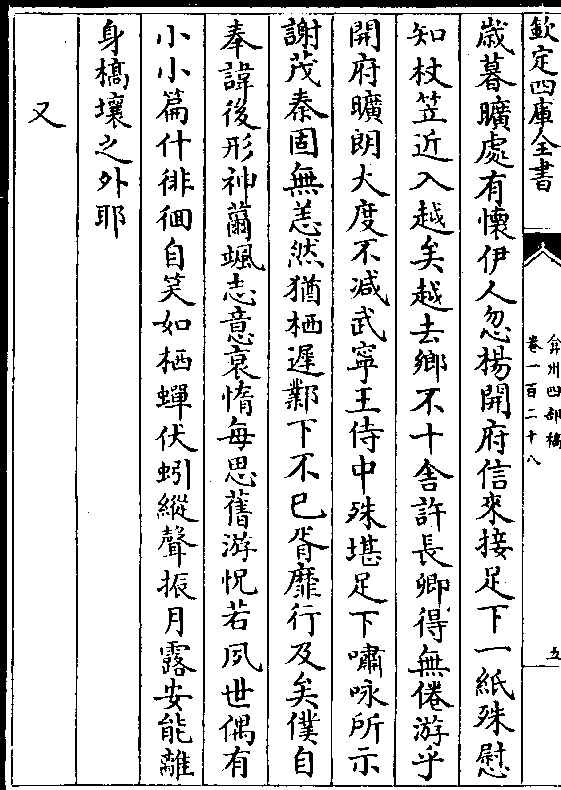 欽定四庫全書
弇州四部稿
卷一百二十八
五
歲暮曠處有懷伊人忽楊開府信來接足下一紙殊慰
知杖笠近入越矣越去鄉不十舍許長卿得無倦游乎
開府曠朗大度不减武寧王侍中殊堪足下嘯咏所示
謝茂秦固無恙然猶栖遲鄴下不已胥靡行及矣僕自
奉諱後形神薾颯志意衰惰每思舊游怳若夙世偶有
小小篇什徘徊自笑如栖蟬伏蚓縱聲振月露安能離
身槁壤之外耶
又